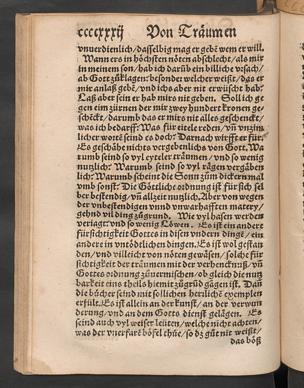 ccccxxxij Von Träumen
vnuerdienlich/dasselbig mag er gebẽ wem er will.
Wann ers in höchsten nöten abschlecht/als mir
in meinem son/hab ich darüb ein billiche vrsach/
ab Gott zůklagen: besonder welcher weißt/das er
mir anlaß gebẽ/vnd ichs aber nit erwüscht hab?
Laß aber sein er hab mirs nit geben. Solt ich ge
gen eim der mir zwey hundert kronen ge-
schẽckt/darumb das er mirs nit alles geschenckt/
was ich bedarff? Was für eitele reden/vñ vnzim
licher wortẽ seind es do? Darnach wirfft er für/
Es geschähe nichts vergebenlichs von Gott. Wa
rumb seind so vyl eyteler träumen/vnd so wenig
nutzlich? Warumb seind so vyl rägen vergäben
lich? Warumb scheint die Sonn zům dickern mal
vmb sonst? Die Göttliche ordnung ist für sich sel
ber bestendig/vñ allzeit nutzlich. Aber von wegen
der vnbestendigen vnnd vnwarhafften matery/
gehnd vil ding zůgrund. Wie vyl hasen werden
veriagt/vnd so wenig Löwen. Es ist ein andere
fürsichtigkeit Gottes in disen vndern dingẽ/ein
andere in vntödtlichen dingen. Es ist wol gestan
den/vnd villeicht von nöten gewäsen/solche für
sichtigkeit der träumen mit der verkenderung/vñ
Gottes ordnung zůuermischen/ob gleich die nutz
barkeit eins theils hiemit zůgrůd gägen ist. Dañ
die bücher seind mit sollichen herrlichẽ exemplen
erfüllt. Es ist allein an der kunst/an der verwun
derung/vnd an dem Gottes dienst gelägen. Es
seind auch vyl weiser leüten/welche nicht achten/
was der vnerfarẽ böfel thüe/so dz gůt nit weißt/
das böß